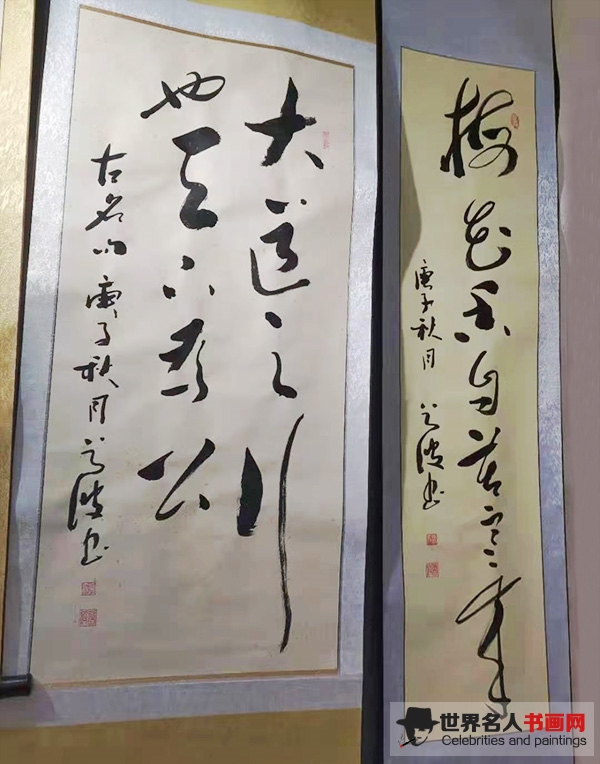 大道之行
也天下为公
古名句 庚子秋月 波书
梅花香自苦寒来
庚子秋月 波书
世界名人书画网
Celebrities and paintings